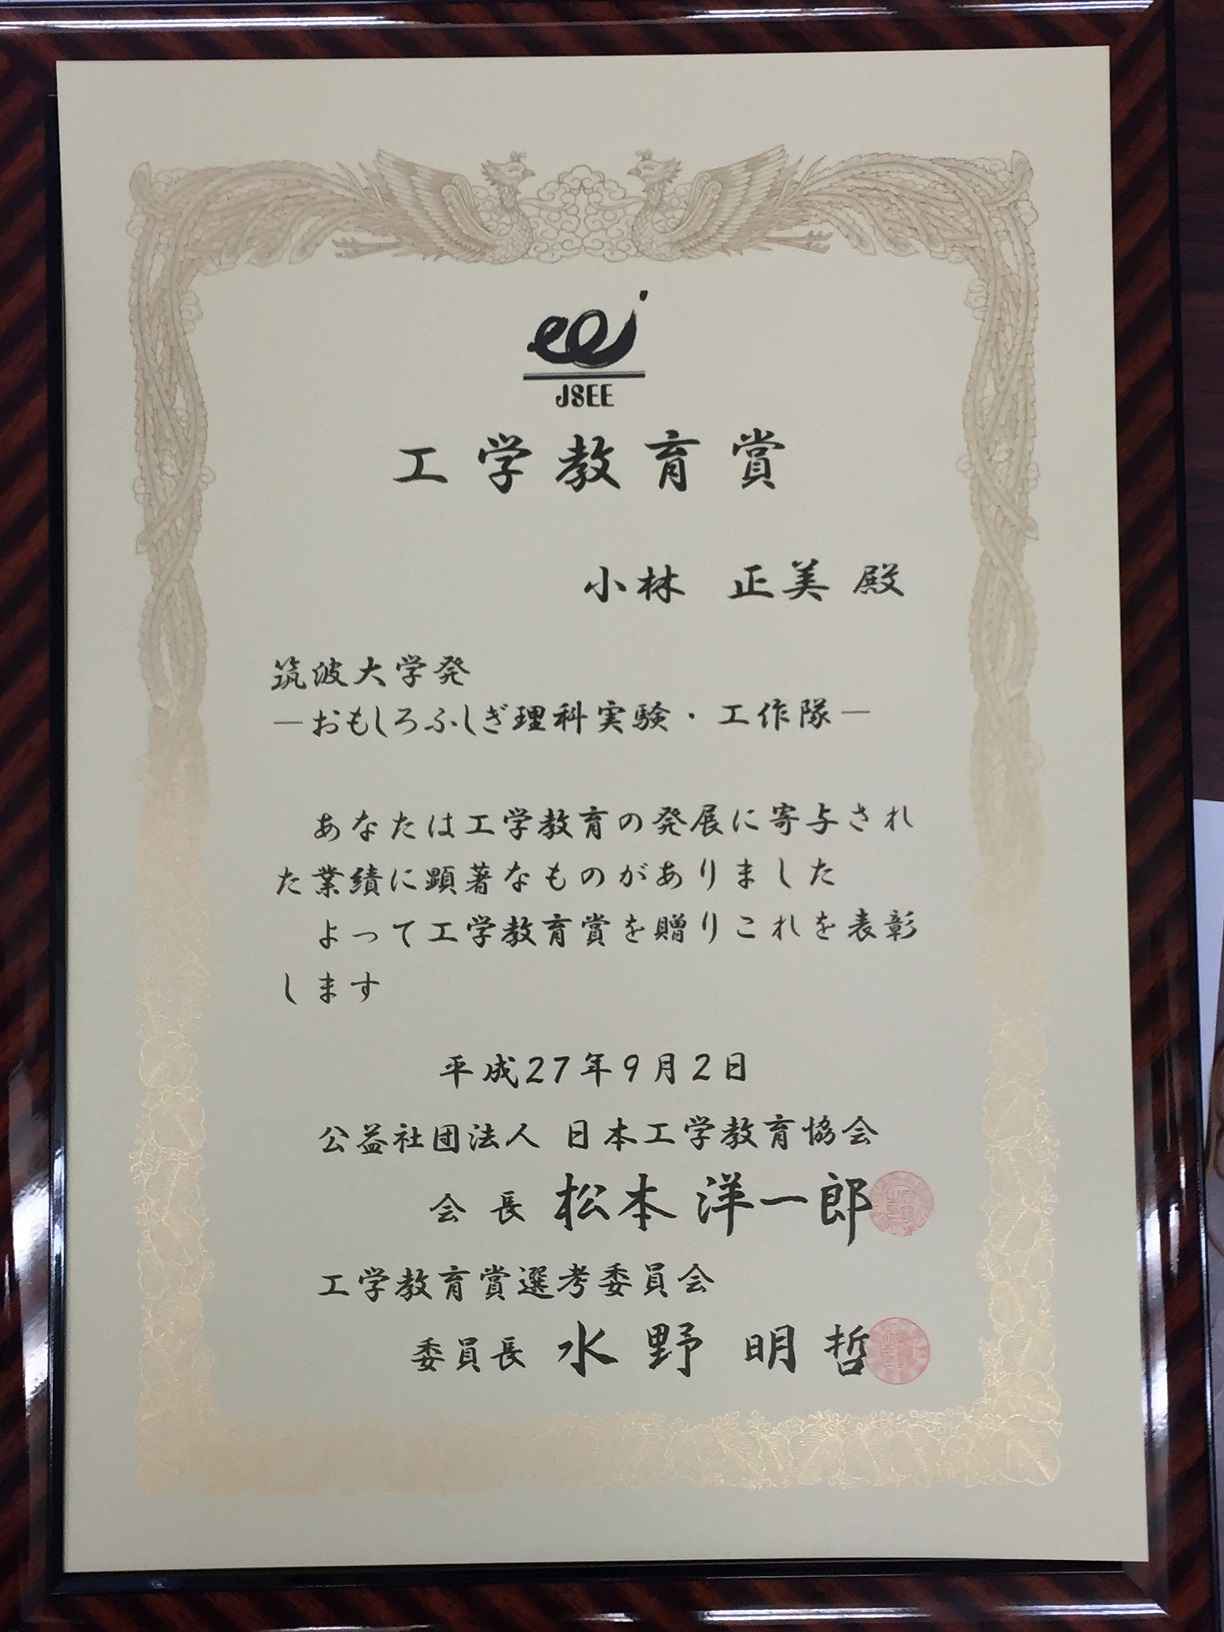 eej
JSEE
工学教育賞
小林 正美 殿
筑波大学発
―おもしろふしぎ理科実験・工作隊―
あなたは工学教育の発展に寄与され
た業績に顕著なものがありました
よって工学教育賞を贈りこれを表彰
します
平成27年9月2日
公益社団法人 日本工学教育協会
会長 松本 洋一郎
工学教育賞選考委員会
委員長 水野 明哲